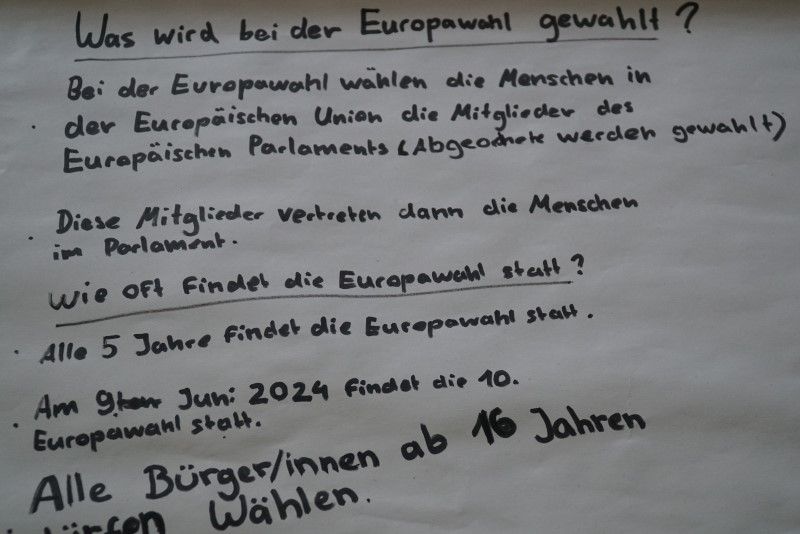 Was wird bei der Europawahl gewahlt?
Bei der Europawahl wählen die Menschen in
der Europäischen Union die Mitglieder des
Europäischen Parlaments (Abgeordnete werden gewahlt)
Diese Mitglieder vertreten dann die Menschen
im Parlament.
Wie oft findet die Europawahl statt?
Alle 5 Jahre findet die Europawahl statt.
Am 9ten Juni 2024 findet die 10.
Europawahl statt.
Alle Bürger/innen ab 16 Jahren
dürfen Wählen.